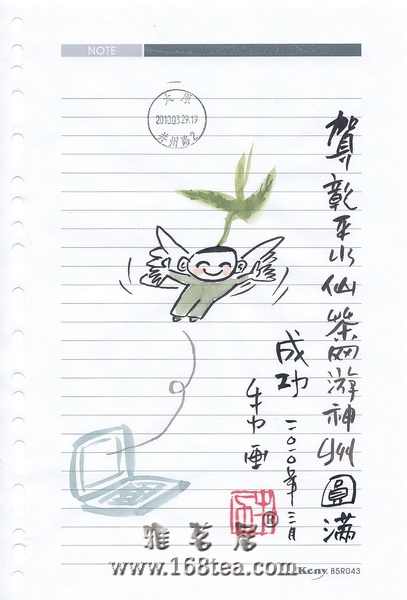 NOTE
太原
2010.03.29.19
并州路2
賀彰平水仙茶网游神州圓滿
成功
二〇一〇年三月
雅茗居
www.168tea.com
Keny B5R043
®